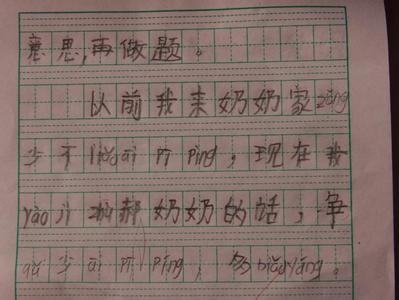 意思,再做题。
以前我来奶奶家zǒng
少不liǎoái pī pīng,现在我
yào jì 奶奶的话,争
qǔ 少 ái pī pīng,多biǎoyáng。